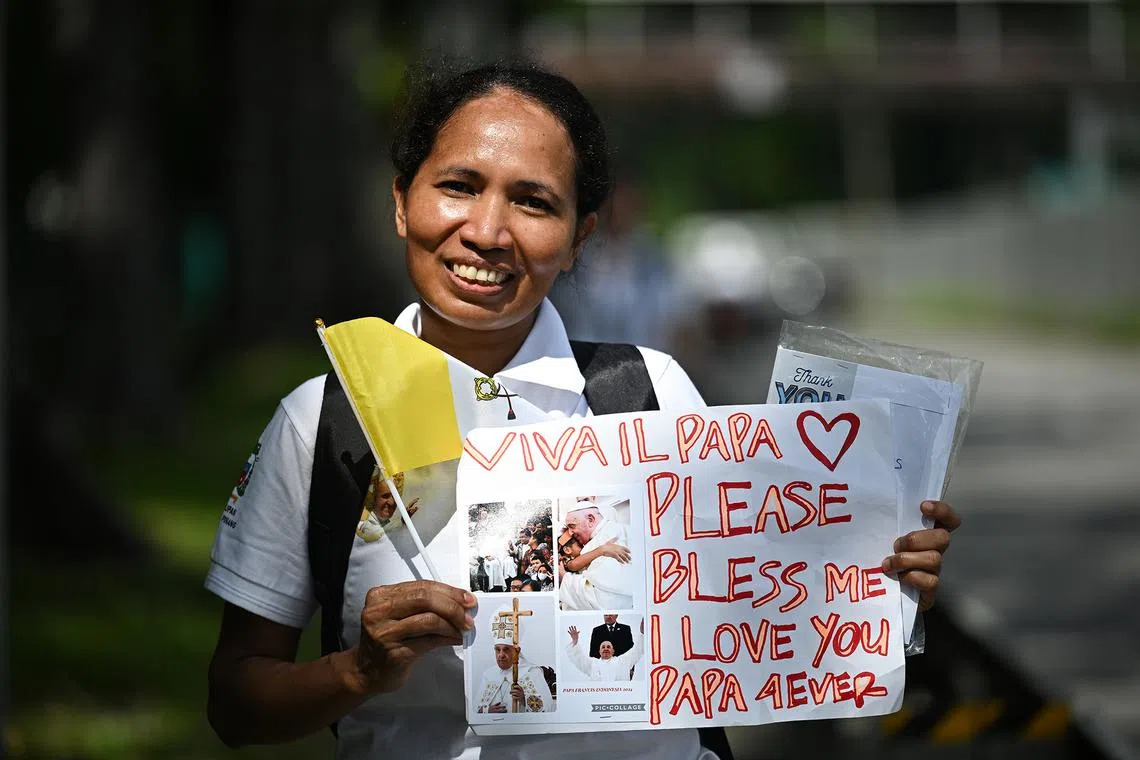 VIVA IL PAPA
PLEASE
BLESS ME
I LOVE YOU
PAPA 4EVER
PAPA FRANCIS INDONESIA 2024
PIC•COLLAGE
Thank
YOU
S